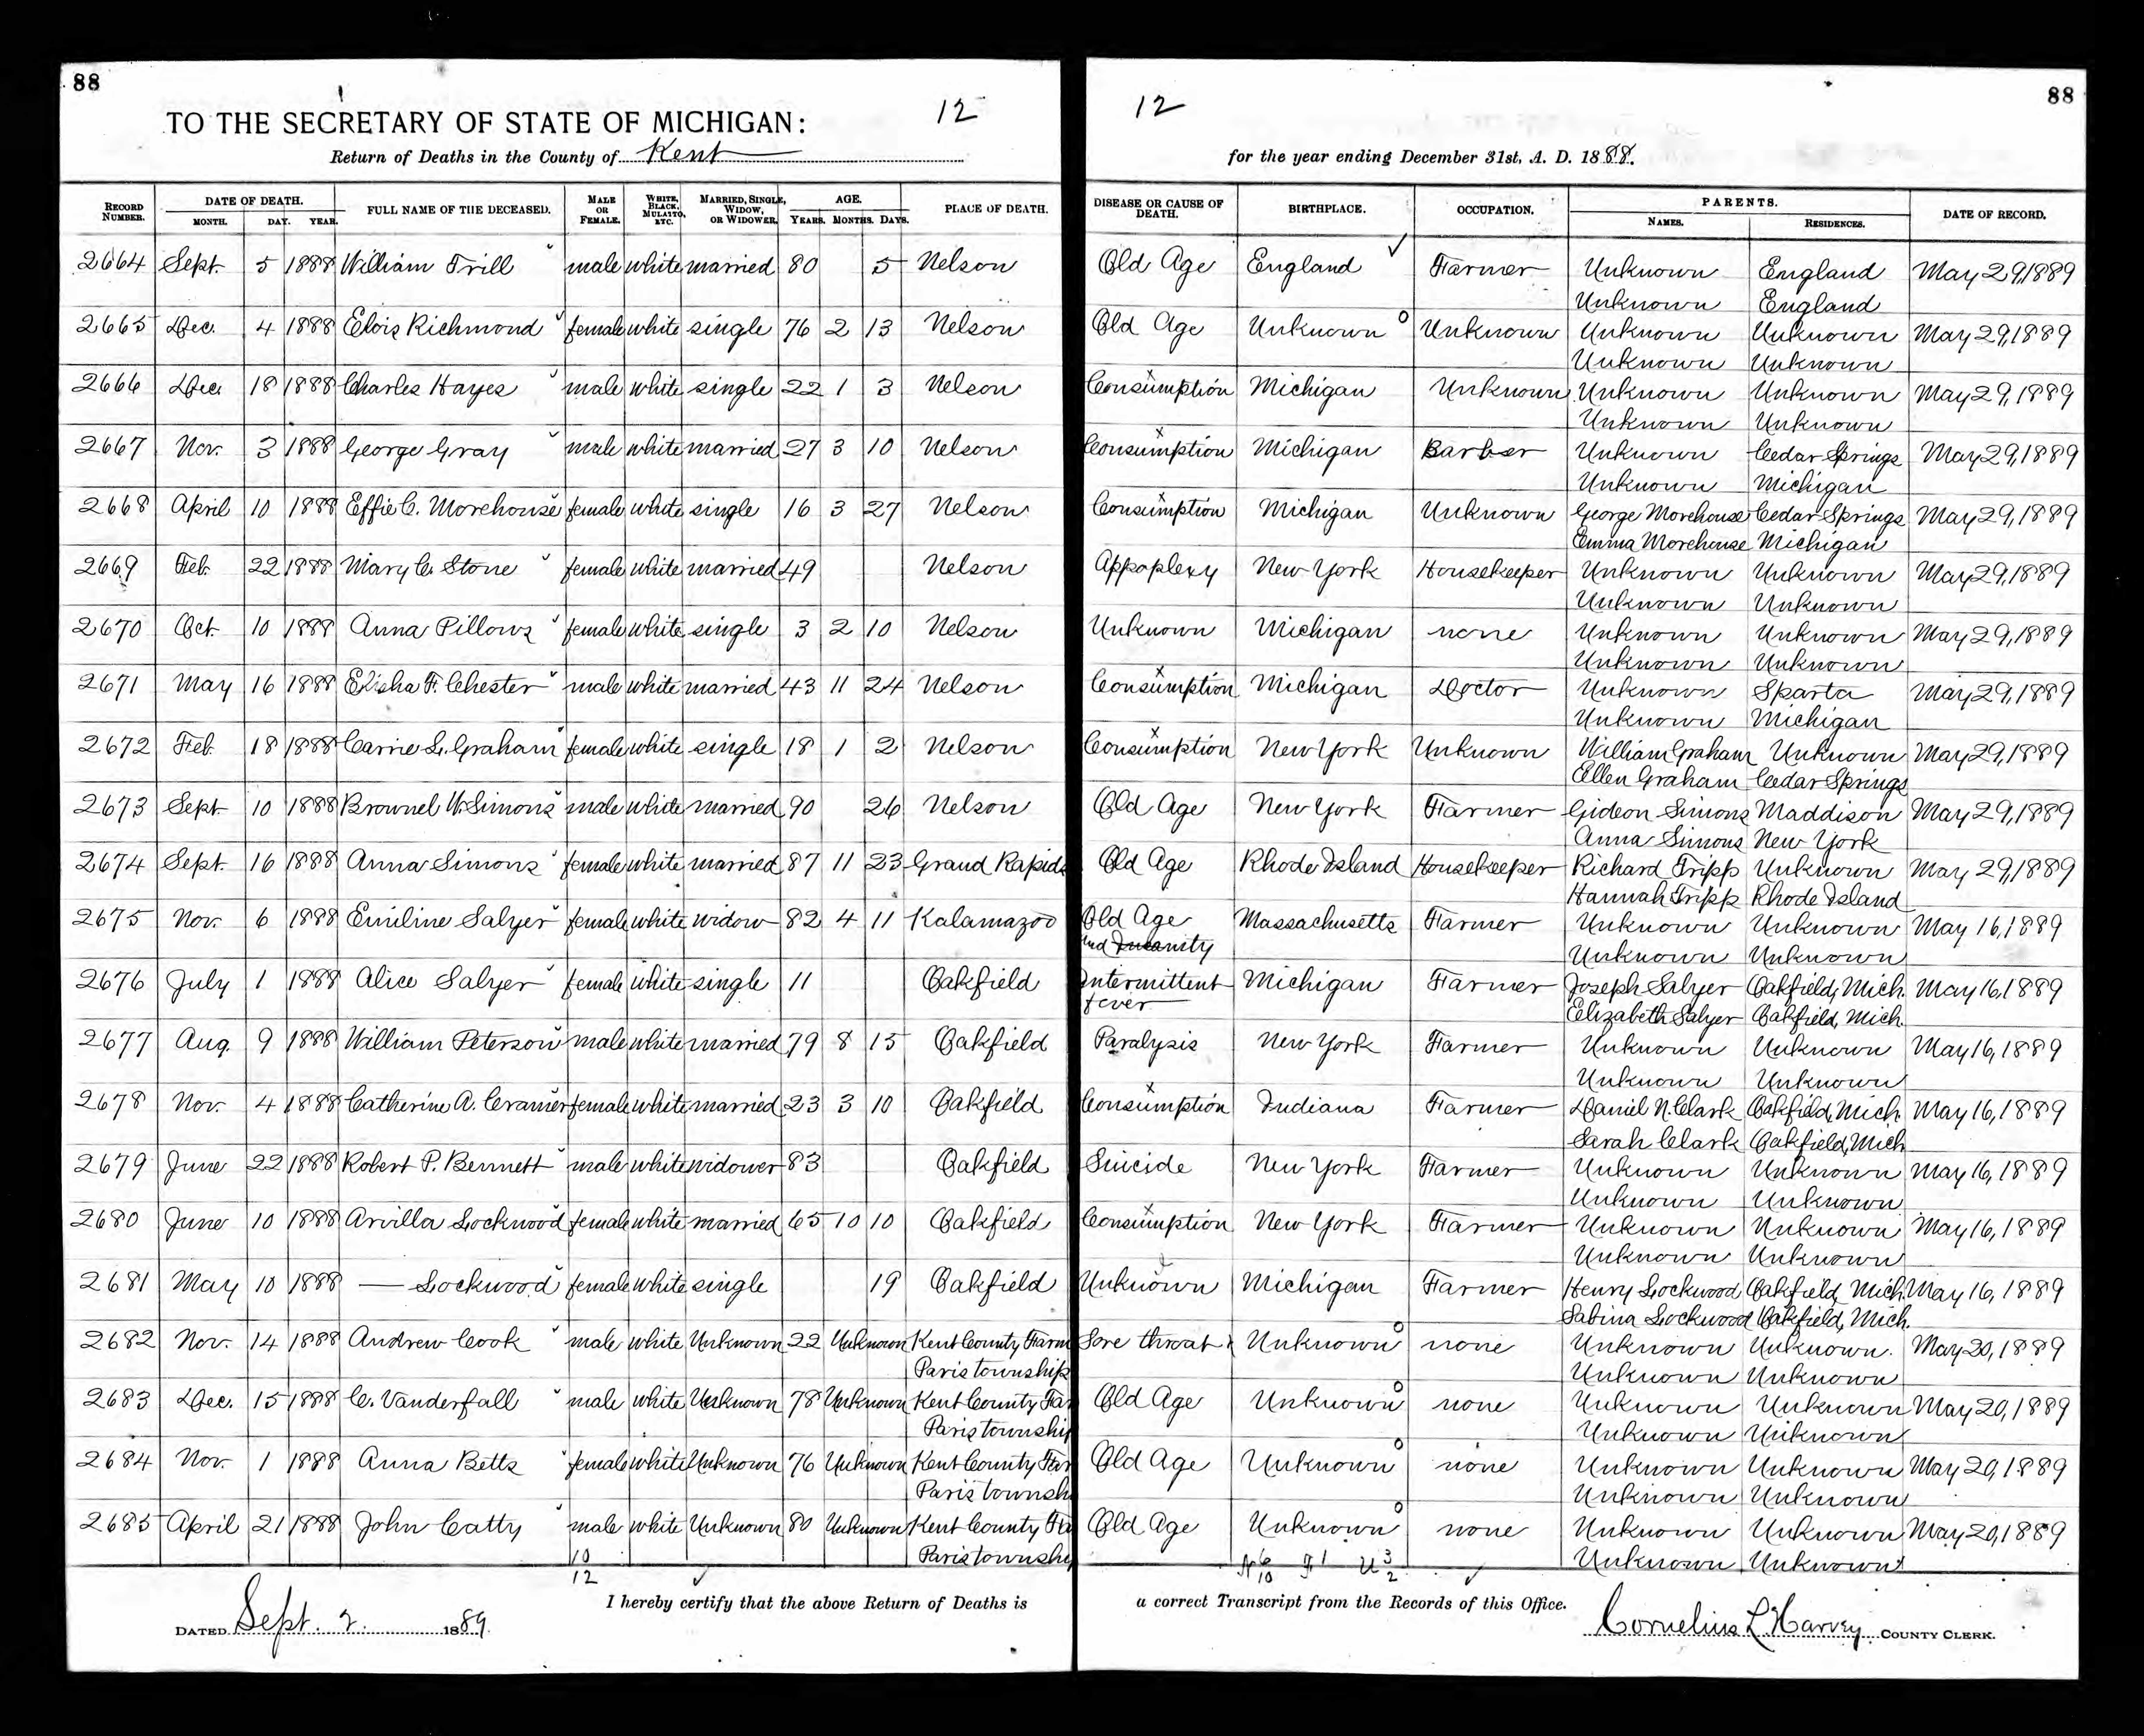 88
88
TO THE SECRETARY OF STATE OF MICHIGAN: 12
12
Return of Deaths in the County of Kent
for the year ending December 31st, A. D. 1888.
RECORD NUMBER. DATE OF DEATH. MONTH. DAY. YEAR. FULL NAME OF THE DECEASED. MALE OR FEMALE. WHITE, BLACK, MULATTO, ETC. MARRIED, SINGLE, WIDOW, OR WIDOWER. AGE. YEARS. MONTHS. DAYS. PLACE OF DEATH. DISEASE OR CAUSE OF DEATH. BIRTHPLACE. OCCUPATION. PARENTS. NAMES. RESIDENCES. DATE OF RECORD.
2664 Sept. 5 1888 William Trill male white married 80 5 Nelson Old Age England Farmer Unknown England May 29, 1889
Unknown England
2665 Dec. 4 1888 Elois Richmond female white single 76 2 13 Nelson Old Age Unknown Unknown Unknown Unknown May 29, 1889
Unknown Unknown
2666 Dec. 18 1888 Charles Hayes male white single 22 1 3 Nelson Consumption Michigan Unknown Unknown Unknown May 29, 1889
Unknown Unknown
2667 Nov. 3 1888 George Gray male white married 27 3 10 Nelson Consumption Michigan Barber Unknown Cedar Springs May 29, 1889
Unknown Michigan
2668 April 10 1888 Effie C. Morehouse female white single 16 3 27 Nelson Consumption Michigan Unknown George Morehouse Cedar Springs May 29, 1889
Emma Morehouse Michigan
2669 Feb. 22 1888 Mary C. Stone female white married 49 Nelson Appoplexy New York Housekeeper Unknown Unknown May 29, 1889
Unknown Unknown
2670 Oct. 10 1888 Anna Pillows female white single 3 2 10 Nelson Unknown Michigan none Unknown Unknown May 29, 1889
Unknown Unknown
2671 May 16 1888 Elisha F. Chester male white married 43 11 24 Nelson Consumption Michigan Doctor Unknown Sparta May 29, 1889
Unknown Michigan
2672 Feb. 18 1888 Carrie L. Graham female white single 18 1 2 Nelson Consumption New York Unknown William Graham Unknown May 29, 1889
Ellen Graham Cedar Springs
2673 Sept. 10 1888 Brownel W. Simons male white married 90 26 Nelson Old Age New York Farmer Gideon Simons Maddison May 29, 1889
Anna Simons New York
2674 Sept. 16 1888 Anna Simons female white married 87 11 23 Grand Rapids Old Age Rhode Island Housekeeper Richard Tripp Unknown May 29, 1889
Hannah Tripp Rhode Island
2675 Nov. 6 1888 Emiline Salyer female white widow 82 4 11 Kalamazoo Old Age Massachusetts Farmer Unknown Unknown May 16, 1889
and Insanity Unknown Unknown
2676 July 1 1888 Alice Salyer female white single 11 Oakfield Intermittent Michigan Farmer Joseph Salyer Oakfield, Mich. May 16, 1889
fever Elizabeth Salyer Oakfield, Mich.
2677 Aug. 9 1888 William Peterson male white married 79 8 15 Oakfield Paralysis New York Farmer Unknown Unknown May 16, 1889
Unknown Unknown
2678 Nov. 4 1888 Catherine A. Cramer female white married 23 3 10 Oakfield Consumption Indiana Farmer Daniel N. Clark Oakfield, Mich. May 16, 1889
Sarah Clark Oakfield, Mich
2679 June 22 1888 Robert P. Bennett male white widower 83 Oakfield Suicide New York Farmer Unknown Unknown May 16, 1889
Unknown Unknown
2680 June 10 1888 Arvilla Lockwood female white married 65 10 10 Oakfield Consumption New York Farmer Unknown Unknown May 16, 1889
Unknown Unknown
2681 May 10 1888 — Lockwood female white single 19 Oakfield Unknown Michigan Farmer Henry Lockwood Oakfield, Mich. May 16, 1889
Sabina Lockwood Oakfield, Mich.
2682 Nov. 14 1888 Andrew Cook male white Unknown 22 Unknown Kent County Farm Sore throat Unknown none Unknown Unknown. May 20, 1889
Paris township Unknown Unknown
2683 Dec. 15 1888 C. Vanderfall male white Unknown 78 Unknown Kent County Far Old Age Unknown none Unknown Unknown May 20, 1889
Paris township Unknown Unknown
2684 Nov. 1 1888 Anna Betts female white Unknown 76 Unknown Kent County Far Old Age Unknown none Unknown Unknown May 20, 1889
Paris townsh Unknown Unknown
2685 April 21 1888 John Catty male white Unknown 80 Unknown Kent County Fa Old Age Unknown none Unknown Unknown May 20, 1889
Paris townshi Unknown Unknown
10
12
I hereby certify that the above Return of Deaths is
a correct Transcript from the Records of this Office.
DATED Sept. 2. 1889.
Cornelius L. Harvey COUNTY CLERK.